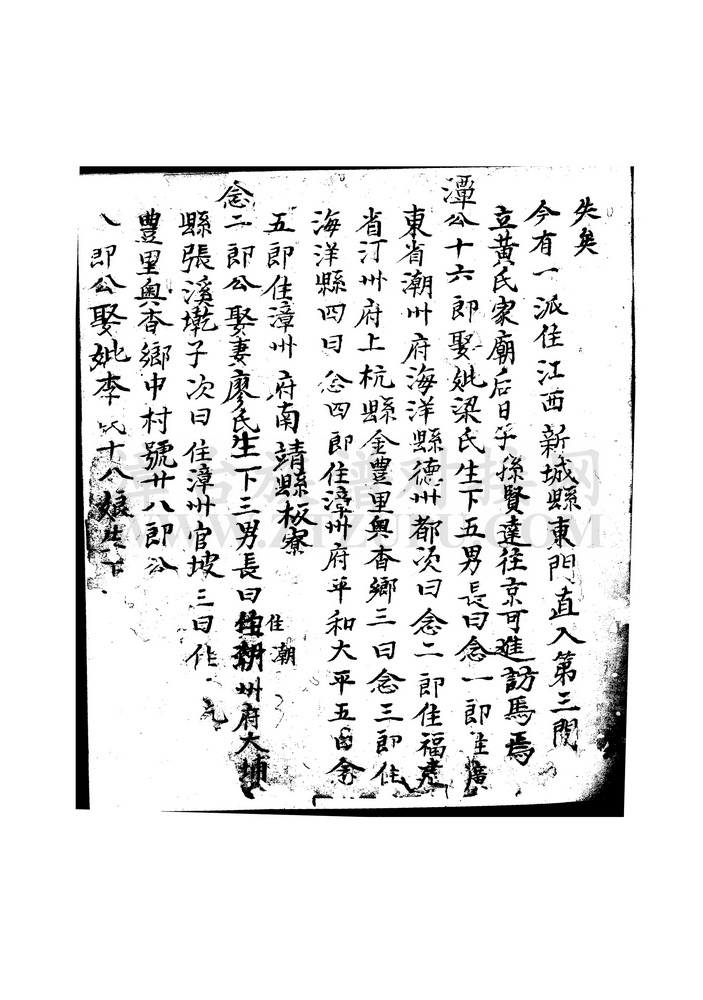 失矣
今有一派住江西新城縣東門直入第三間
立黃氏家廟后日子孫賢達往京可進訪焉焉
潭公十六郎娶妣梁氏生下五男長曰念一郎住廣
東省潮州府海洋縣德州都次曰念二郎住福建
省汀州府上杭縣金豐里奧杳鄉三曰念三郎住
海洋縣四曰念四郎住漳州府平和大平五曰念
五郎住漳州府南靖縣板寮
念二郎公娶妻廖氏生下三男長曰住潮州府大埔
住潮
縣張溪墘子次曰住漳州官坡三曰住
豐里奧杳鄉中村號廿八郎公
八郎公娶妣李氏十八娘生下
臺灣族譜對接網
WWW.ZTZUPU.COM